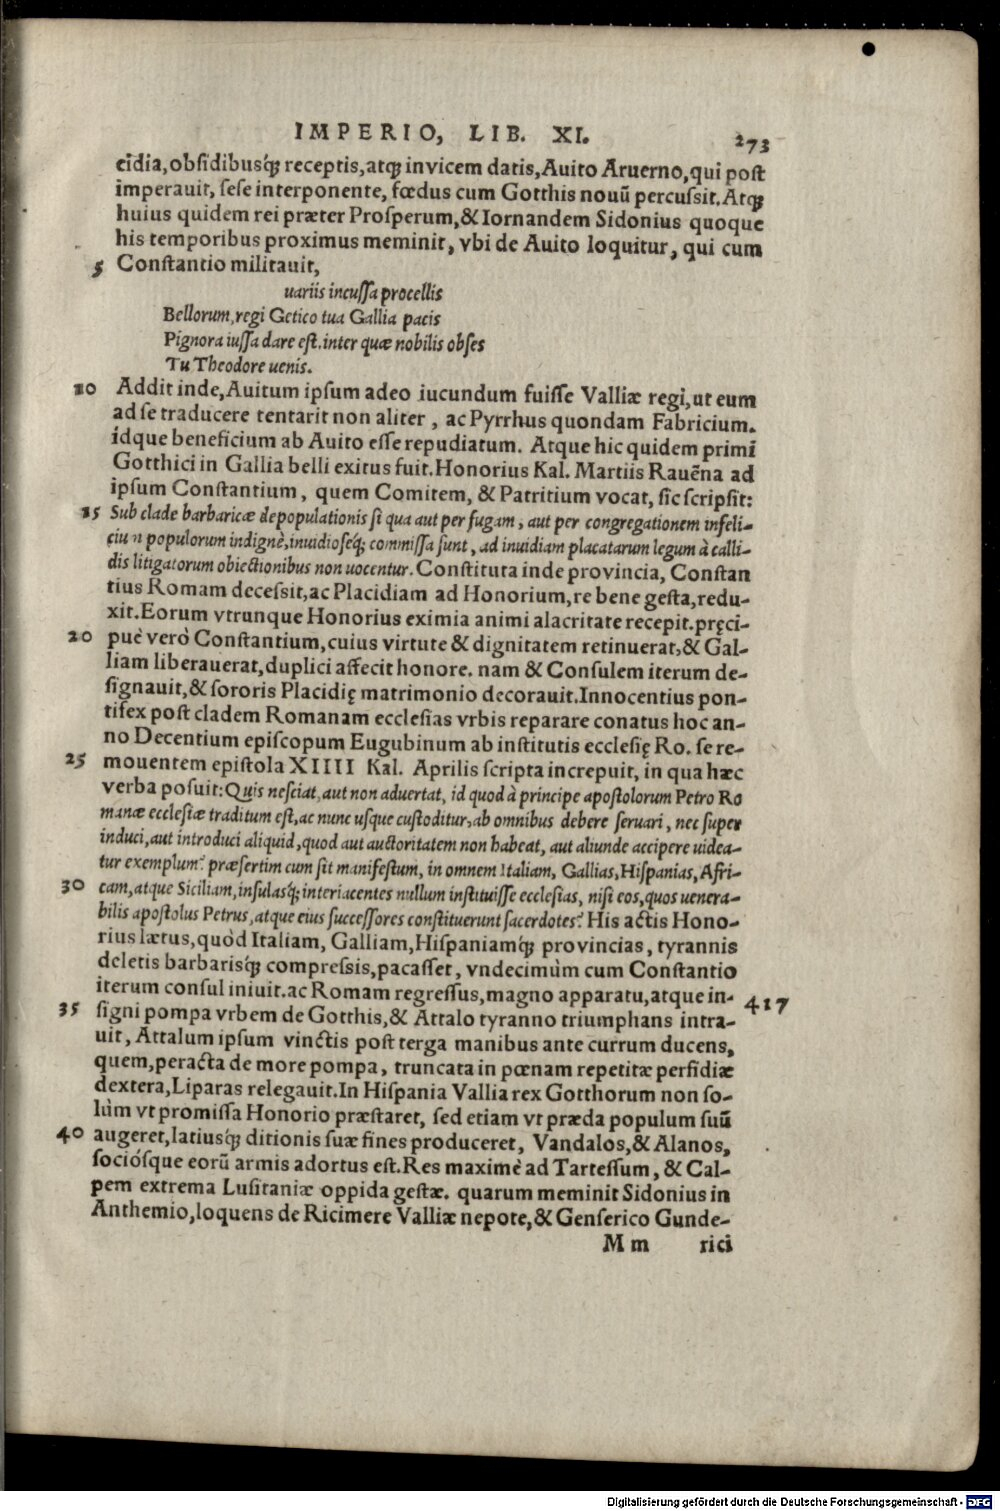 IMPERIO, LIB. XI. 273
cidia, obsidibusq́; receptis, atq; invicem datis, Auito Aruerno, qui post
imperauit, sese interponente, fœdus cum Gotthis nouũ percussit. Atq;
huius quidem rei præter Prosperum, & Iornandem Sidonius quoque
his temporibus proximus meminit, vbi de Auito loquitur, qui cum
5 Constantio militauit,
uariis incussa procellis
Bellorum, regi Getico tua Gallia pacis
Pignora iussa dare est. inter quæ nobilis obses
Tu Theodore uenis.
10 Addit inde, Auitum ipsum adeo iucundum fuisse Valliæ regi, ut eum
ad se traducere tentarit non aliter, ac Pyrrhus quondam Fabricium.
idque beneficium ab Auito esse repudiatum. Atque hic quidem primi
Gotthici in Gallia belli exitus fuit. Honorius Kal. Martiis Rauẽna ad
ipsum Constantium, quem Comitem, & Patritium vocat, sic scripsit:
15 Sub clade barbaricæ depopulationis si qua aut per fugam, aut per congregationem infeli-
ciun populorum indignè, inuidioseq́; commissa sunt, ad inuidiam placatarum legum à calli-
dis litigatorum obiectionibus non uocentur. Constituta inde provincia, Constan
tius Romam decessit, ac Placidiam ad Honorium, re bene gesta, redu-
xit. Eorum vtrunque Honorius eximia animi alacritate recepit. pręci-
20 puè verò Constantium, cuius virtute & dignitatem retinuerat, & Gal-
liam liberauerat, duplici affecit honore. nam & Consulem iterum de-
signauit, & sororis Placidię matrimonio decorauit. Innocentius pon-
tifex post cladem Romanam ecclesias vrbis reparare conatus hoc an-
no Decentium episcopum Eugubinum ab institutis ecclesię Ro. se re-
25 mouentem epistola XIIII Kal. Aprilis scripta increpuit, in qua hæc
verba posuit: Quis nesciat, aut non aduertat, id quod à principe apostolorum Petro Ro
manæ ecclesiæ traditum est, ac nunc usque custoditur, ab omnibus debere seruari, nec super
induci, aut introduci aliquid, quod aut auctoritatem non habeat, aut aliunde accipere uidea-
tur exemplum? præsertim cum sit manifestum, in omnem Italiam, Gallias, Hispanias, Afri-
30 cam, atque Siciliam, insulasq́; interiacentes nullum instituisse ecclesias, nisi eos, quos uenera-
bilis apostolus Petrus, atque eius successores constituerunt sacerdotes? His actis Hono-
rius lætus, quòd Italiam, Galliam, Hispaniamq́; provincias, tyrannis
deletis barbarisq́; compressis, pacasset, vndecimùm cum Constantio
iterum consul iniuit. ac Romam regressus, magno apparatu, atque in- 417
35 signi pompa vrbem de Gotthis, & Attalo tyranno triumphans intra-
uit, Attalum ipsum vinctis post terga manibus ante currum ducens,
quem, peracta de more pompa, truncata in pœnam repetitæ perfidiæ
dextera, Liparas relegauit. In Hispania Vallia rex Gotthorum non so-
lùm vt promissa Honorio præstaret, sed etiam vt præda populum suũ
40 augeret, latiusq́; ditionis suæ fines produceret, Vandalos, & Alanos,
sociósque eorũ armis adortus est. Res maximè ad Tartessum, & Cal-
pem extrema Lusitaniæ oppida gestæ. quarum meminit Sidonius in
Anthemio, loquens de Ricimere Valliæ nepote, & Genserico Gunde-
M m rici
Digitalisierung gefördert durch die Deutsche Forschungsgemeinschaft - DFG